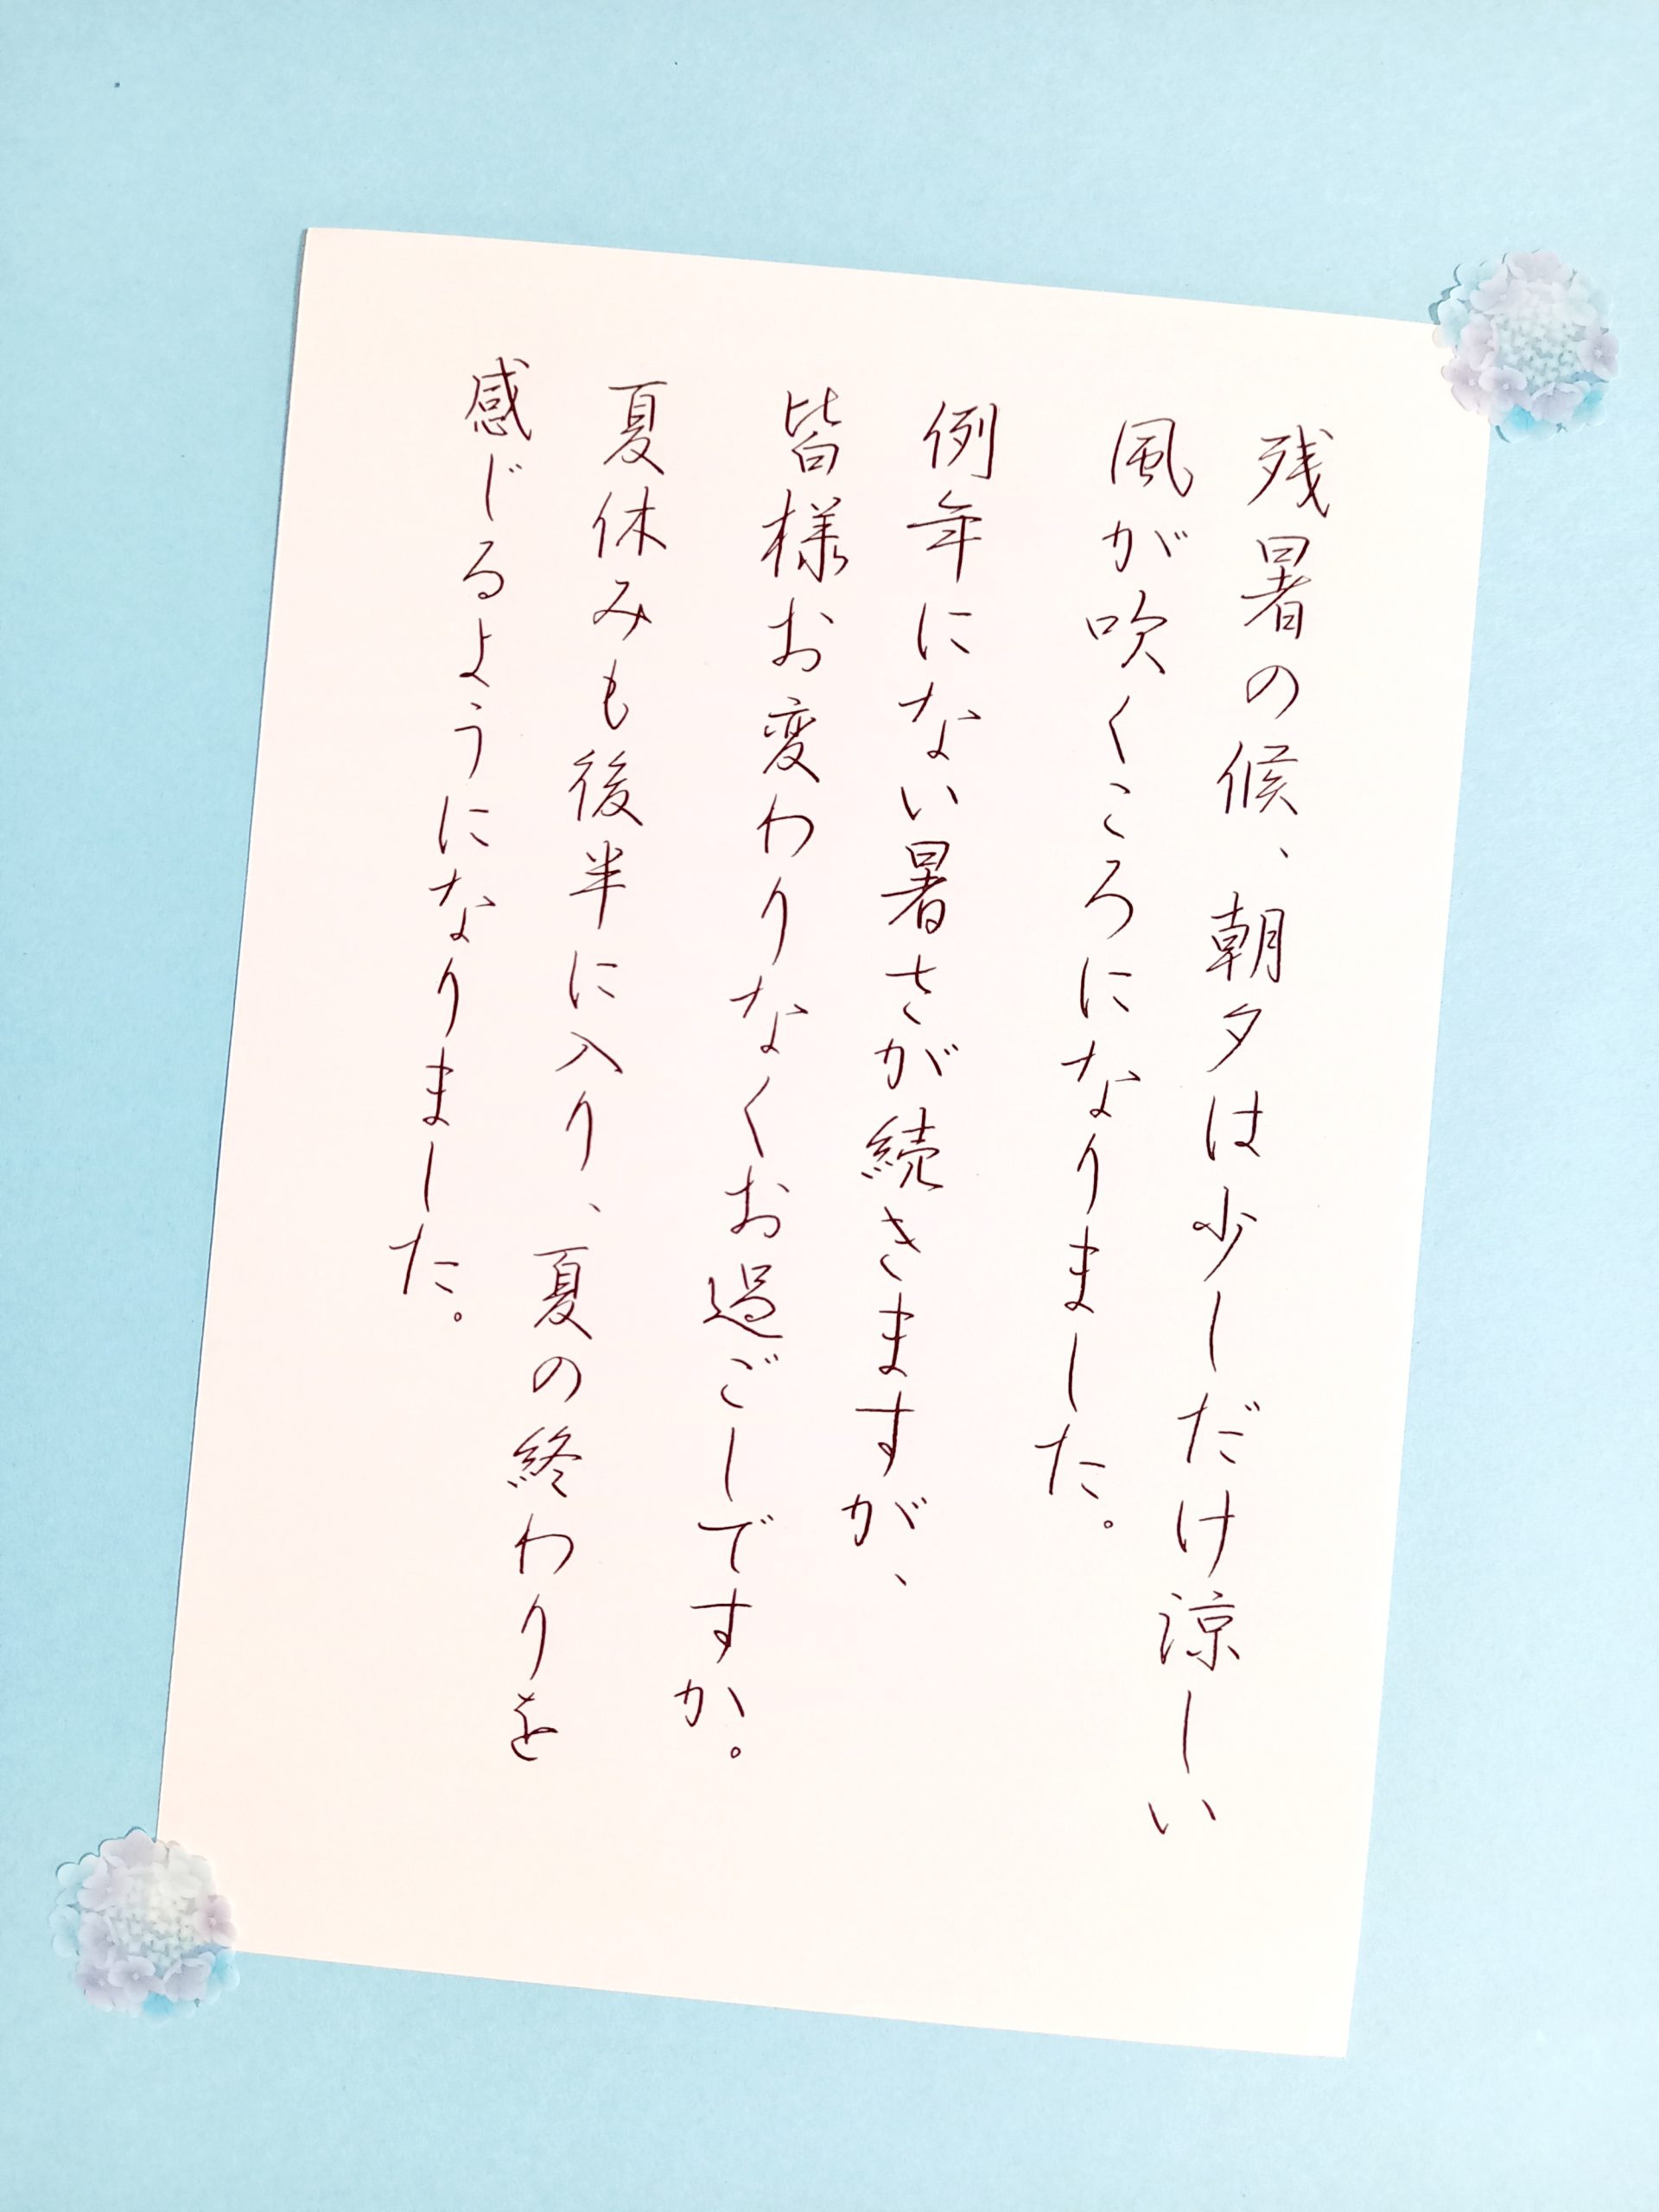 残暑の候、朝夕は少しだけ涼しい
風が吹くころになりました。
例年にない暑さが続きますが、
皆様お変わりなくお過ごしですか。
夏休みも後半に入り、夏の終わりを
感じるようになりました。